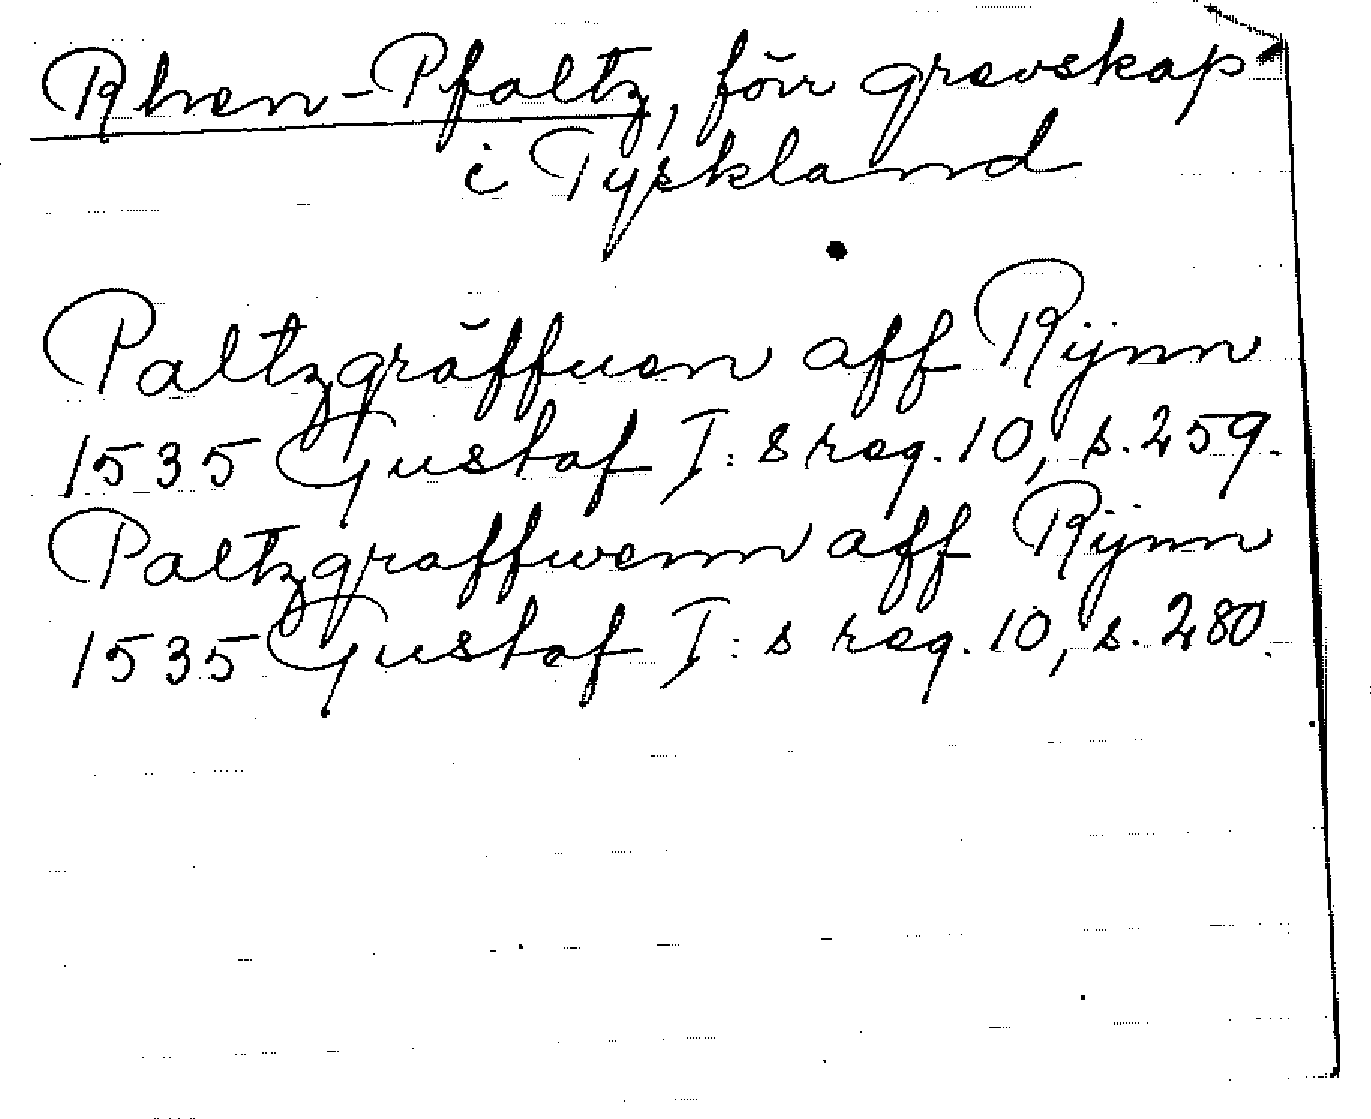 Rhen-Pfaltz, förr grevskap
i Tyskland
Paltzgräffuen aff Rijnn
1535 Gustaf I:s reg. 10, s. 259.
Paltzgraffwenn aff Rijnn
1535 Gustaf I:s reg. 10, s. 280.